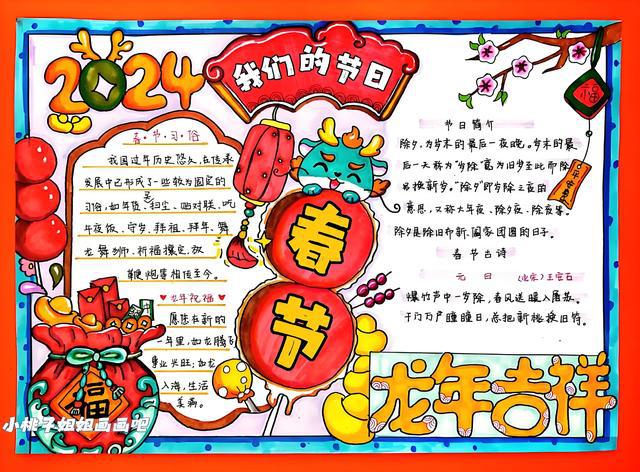 2024
我们的节日
春·节·习·俗
我国过年历史悠久,在传承
发展中已形成了一些较为固定的
习俗,如年货、扫尘、贴对联、吃
年夜饭、守岁、拜祖、拜年、舞
龙舞狮、祈福攘灾、放
鞭炮等相传至今。
龙年祝福
愿您在新的
一年里,如龙腾飞
事业兴旺;如龙
入海,生活
美满。
福
春
节
节日简介
除夕,为岁末的最后一夜晚。岁末的最
后一天称为"岁除"意为旧岁至此而除
另换新岁。"除夕"即岁除之夜的
意思,又称大年夜、除夕夜、除夜等。
除夕是除旧布新、阖家团圆的日子。
春节古诗
元 日 (北宋)王安石
爆竹声中一岁除,春风送暖入屠苏。
千门万户曈曈日,总把新桃换旧符。
福
龙年吉祥
小桃子姐姐画画吧